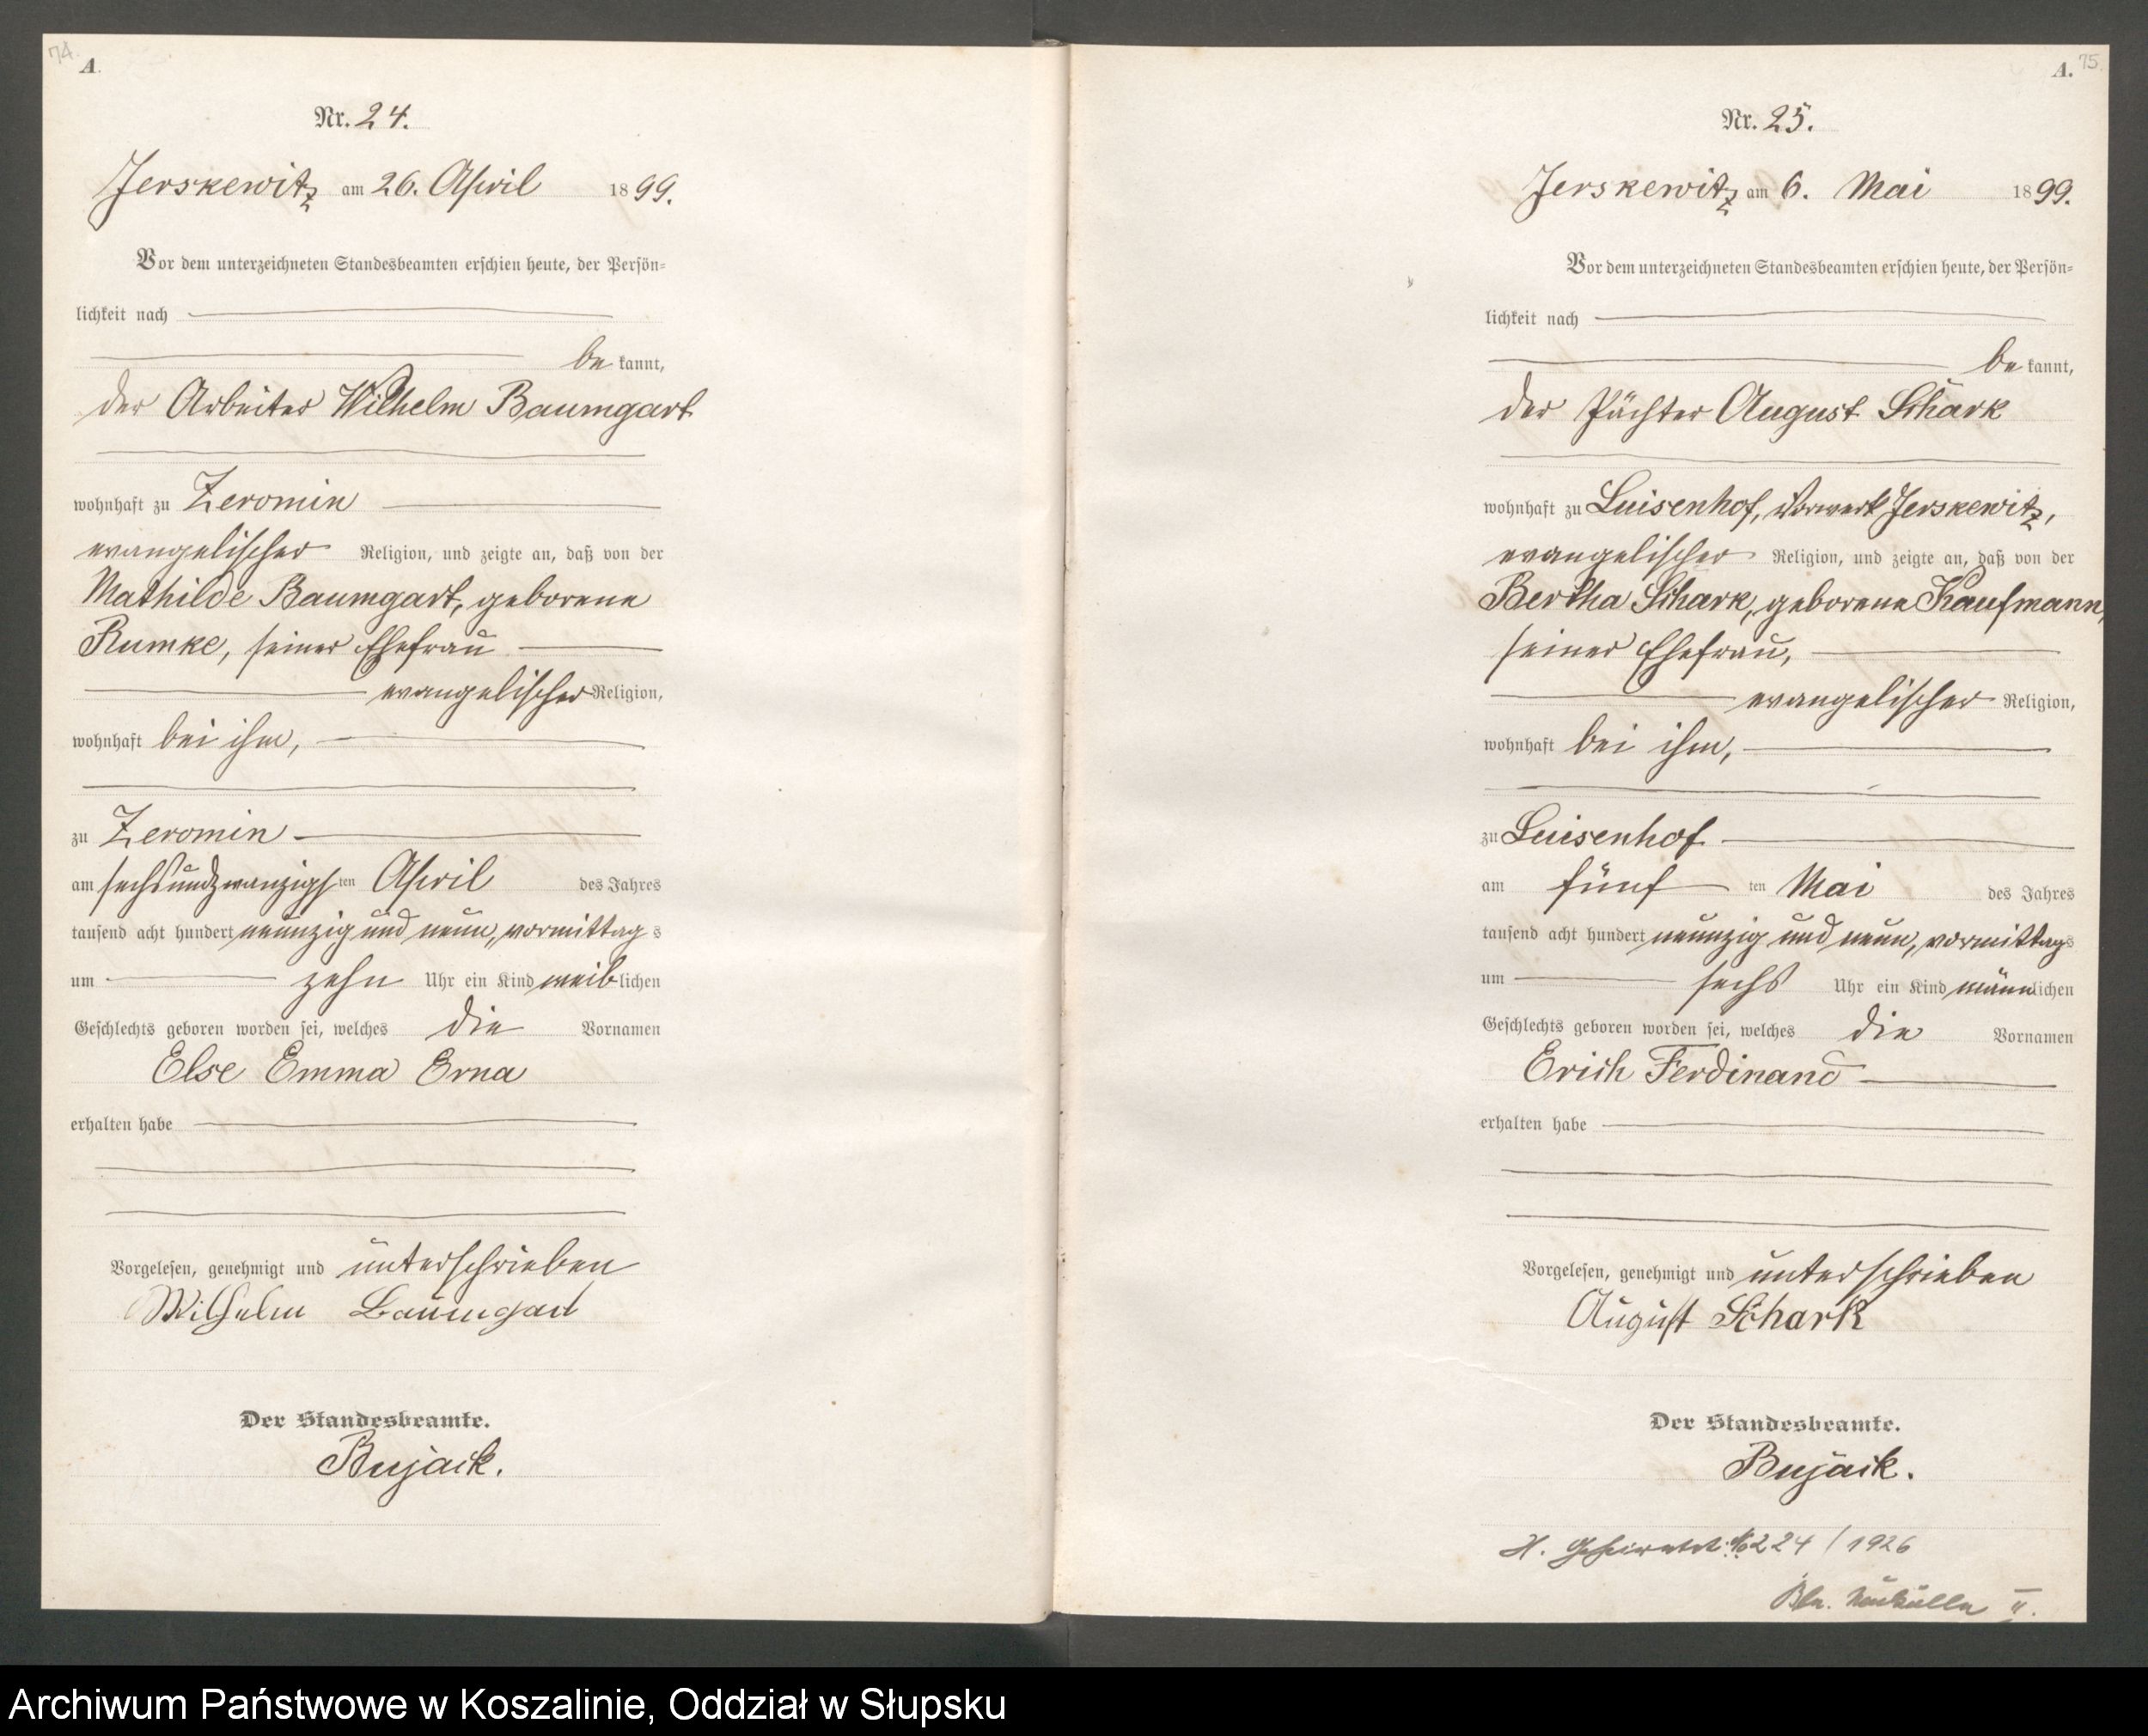 74.
A.
Nr. 24.
Jerskewitz am 26. April 1899.
Vor dem unterzeichneten Standesbeamten erschien heute, der Persön=
lichkeit nach
be kannt,
der Arbeiter Wilhelm Baumgart
wohnhaft zu Zeromin
evangelischer Religion, und zeigte an, daß von der
Mathilde Baumgart, geborene
Rumke, seiner Ehefrau
evangelischer Religion,
wohnhaft bei ihm,
zu Zeromin
am sechsundzwanzigsten April des Jahres
tausend acht hundert neunzig und neun, vormittags
um zehn Uhr ein Kind weiblichen
Geschlechts geboren worden sei, welches die Vornamen
Else Emma Erna
erhalten habe
Vorgelesen, genehmigt und unterschrieben
Wilhelm Baumgart
Der Standesbeamte.
Bujack.
A. 75.
Nr. 25.
Jerskewitz am 6. Mai 1899.
Vor dem unterzeichneten Standesbeamten erschien heute, der Persön=
lichkeit nach
be kannt,
der Pächter August Schark
wohnhaft zu Luisenhof, Vorwerk Jerskewitz,
evangelischer Religion, und zeigte an, daß von der
Bertha Schark, geborene Kaufmann,
seiner Ehefrau,
evangelischer Religion,
wohnhaft bei ihm,
zu Luisenhof
am fünften Mai des Jahres
tausend acht hundert neunzig und neun, vormittags
um sechs Uhr ein Kind männlichen
Geschlechts geboren worden sei, welches die Vornamen
Erich Ferdinand
erhalten habe
Vorgelesen, genehmigt und unterschrieben
August Schark
Der Standesbeamte.
Bujack.
H. Geheiratet: No 224/1926
Bln. Neukölln II.
Archiwum Państwowe w Koszalinie, Oddział w Słupsku